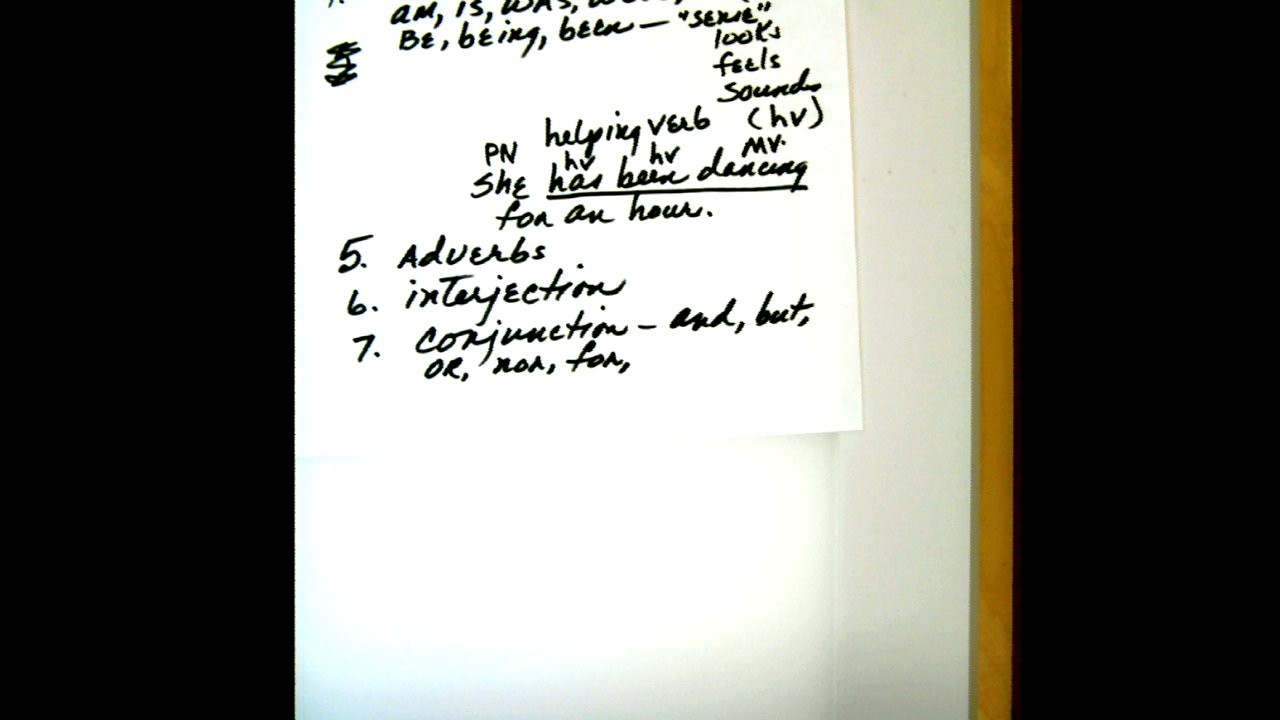 am, is, was,
Be, being, been — "sense"
looks
feels
sounds
helping verb (hv)
PN hv hv MV.
She has been dancing
for an hour.
5. Adverbs
6. interjection
7. conjunction — and, but,
OR, nor, for,